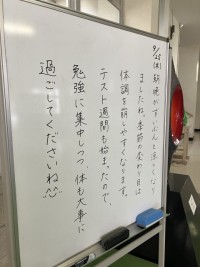 9/25(木) 朝晩がずいぶんと涼しくなり
ましたね。季節の変わり目は
体調を崩しやすくなります。
テスト週間も始まったので、
勉強に集中しつつ、体も大事に
過ごしてくださいね